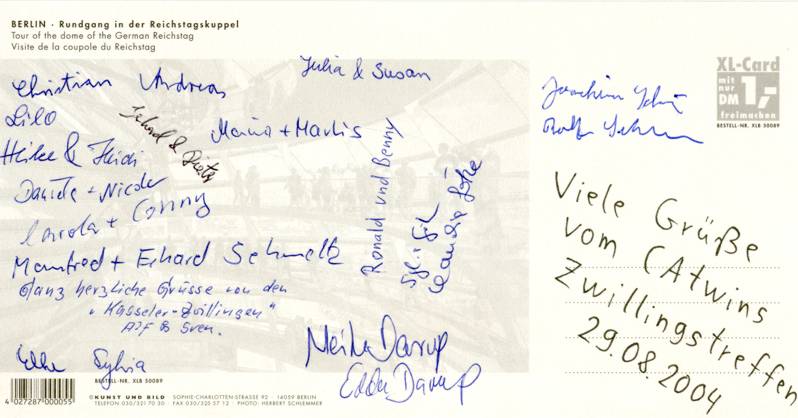 BERLIN · Rundgang in der Reichstagskuppel
Tour of the dome of the German Reichstag
Visite de la coupole du Reichstag
Christian Andreas
Julia & Susan
Lilo
Erhard & Dieter
Heike & Heidi
Mario + Marlis
Daniela + Nicole
Carola + Conny
Ronald und Benny
Manfred + Erhard Schmelz
Ganz herzliche Grüsse von den
"Kasseler-Zwillingen"
Elke Sylvia
Meike Darup
Edda Darup
BESTELL-NR. XLB 50089
4 027287 000055
©KUNST UND BILD SOPHIE-CHARLOTTEN-STRASSE 92 · 14059 BERLIN
TELEFON 030/321 70 30 · FAX 030/325 57 12 · PHOTO: HERBERT SCHLEMMER
XL-Card
mit nur DM 1,-
freimachen
BESTELL-NR. XLB 50089
Joachim
Ralf
Viele Grüße
vom (Atwins
Zwillingstreffen
29.08.2004